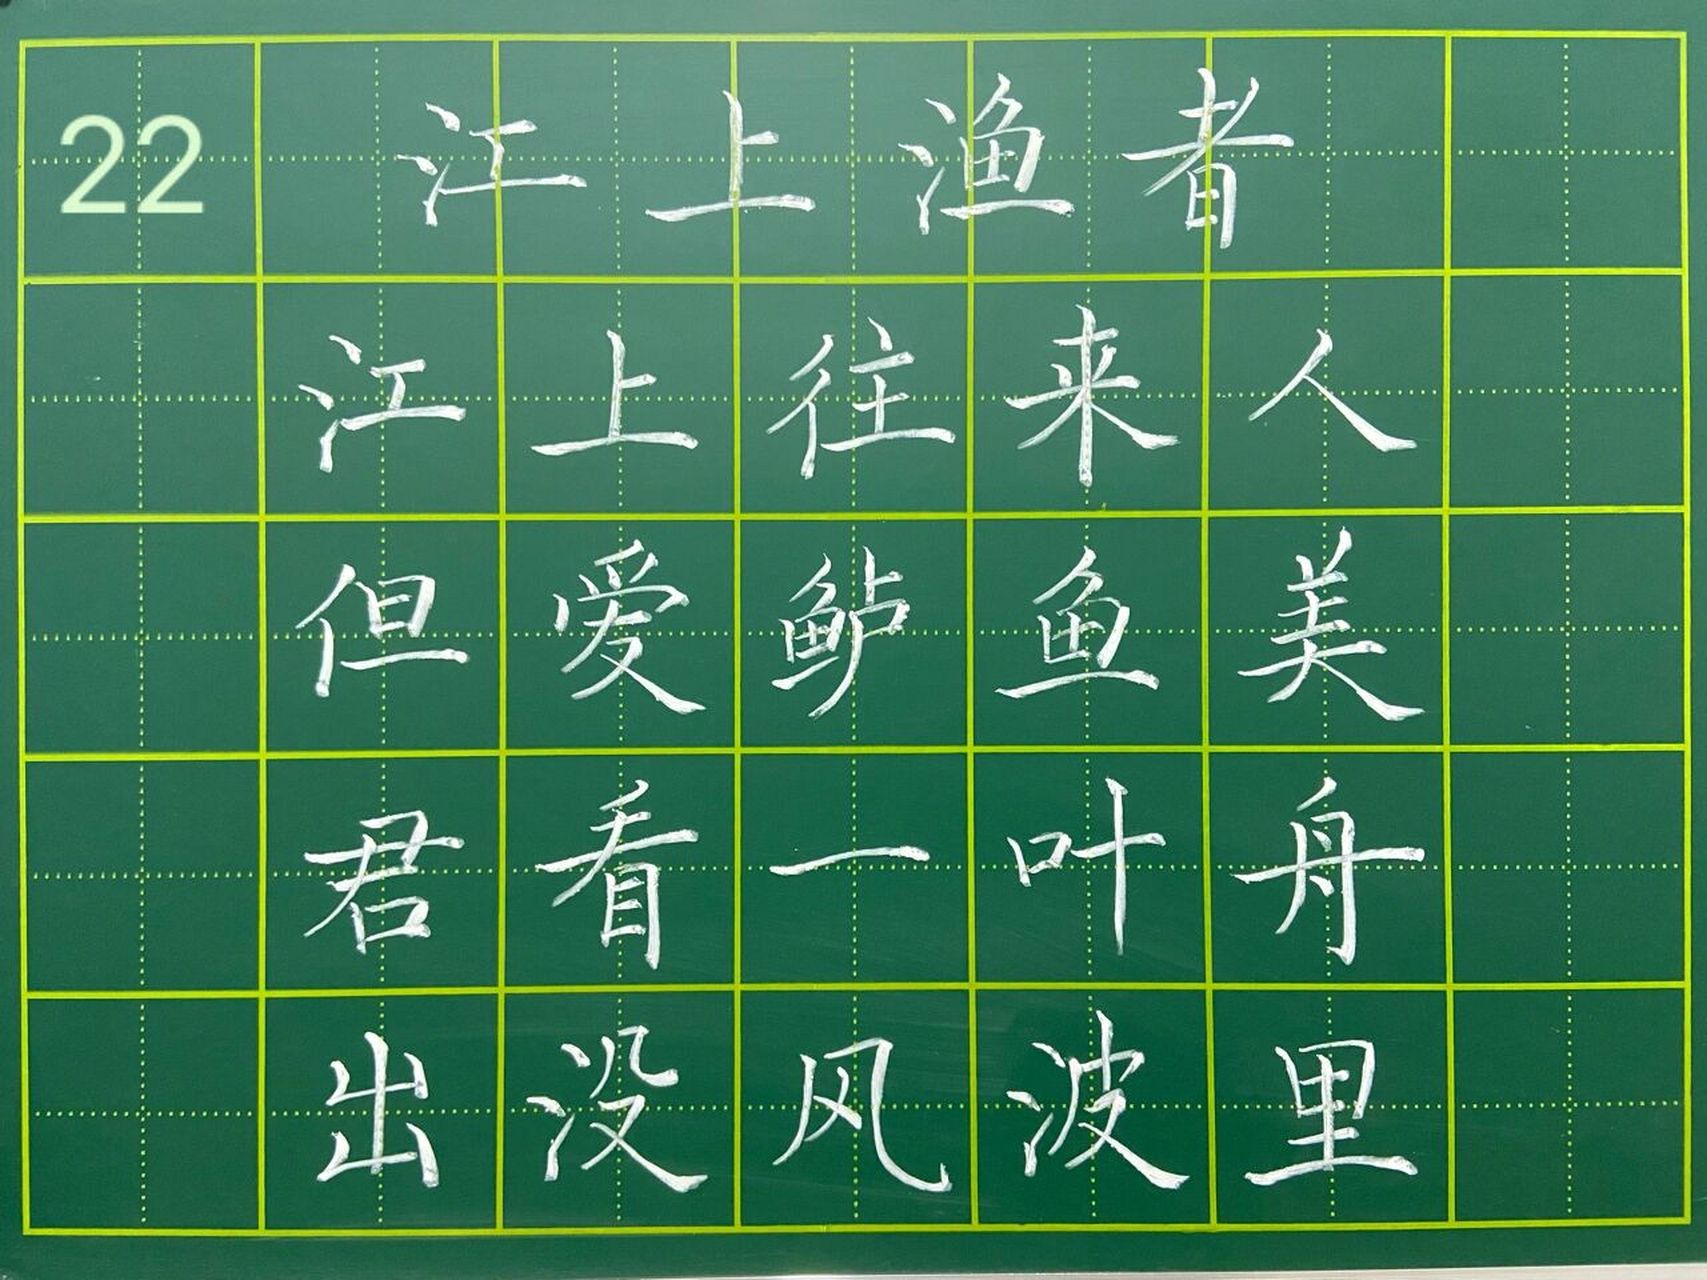 22 江上渔者
江上往来人
但爱鲈鱼美
君看一叶舟
出没风波里